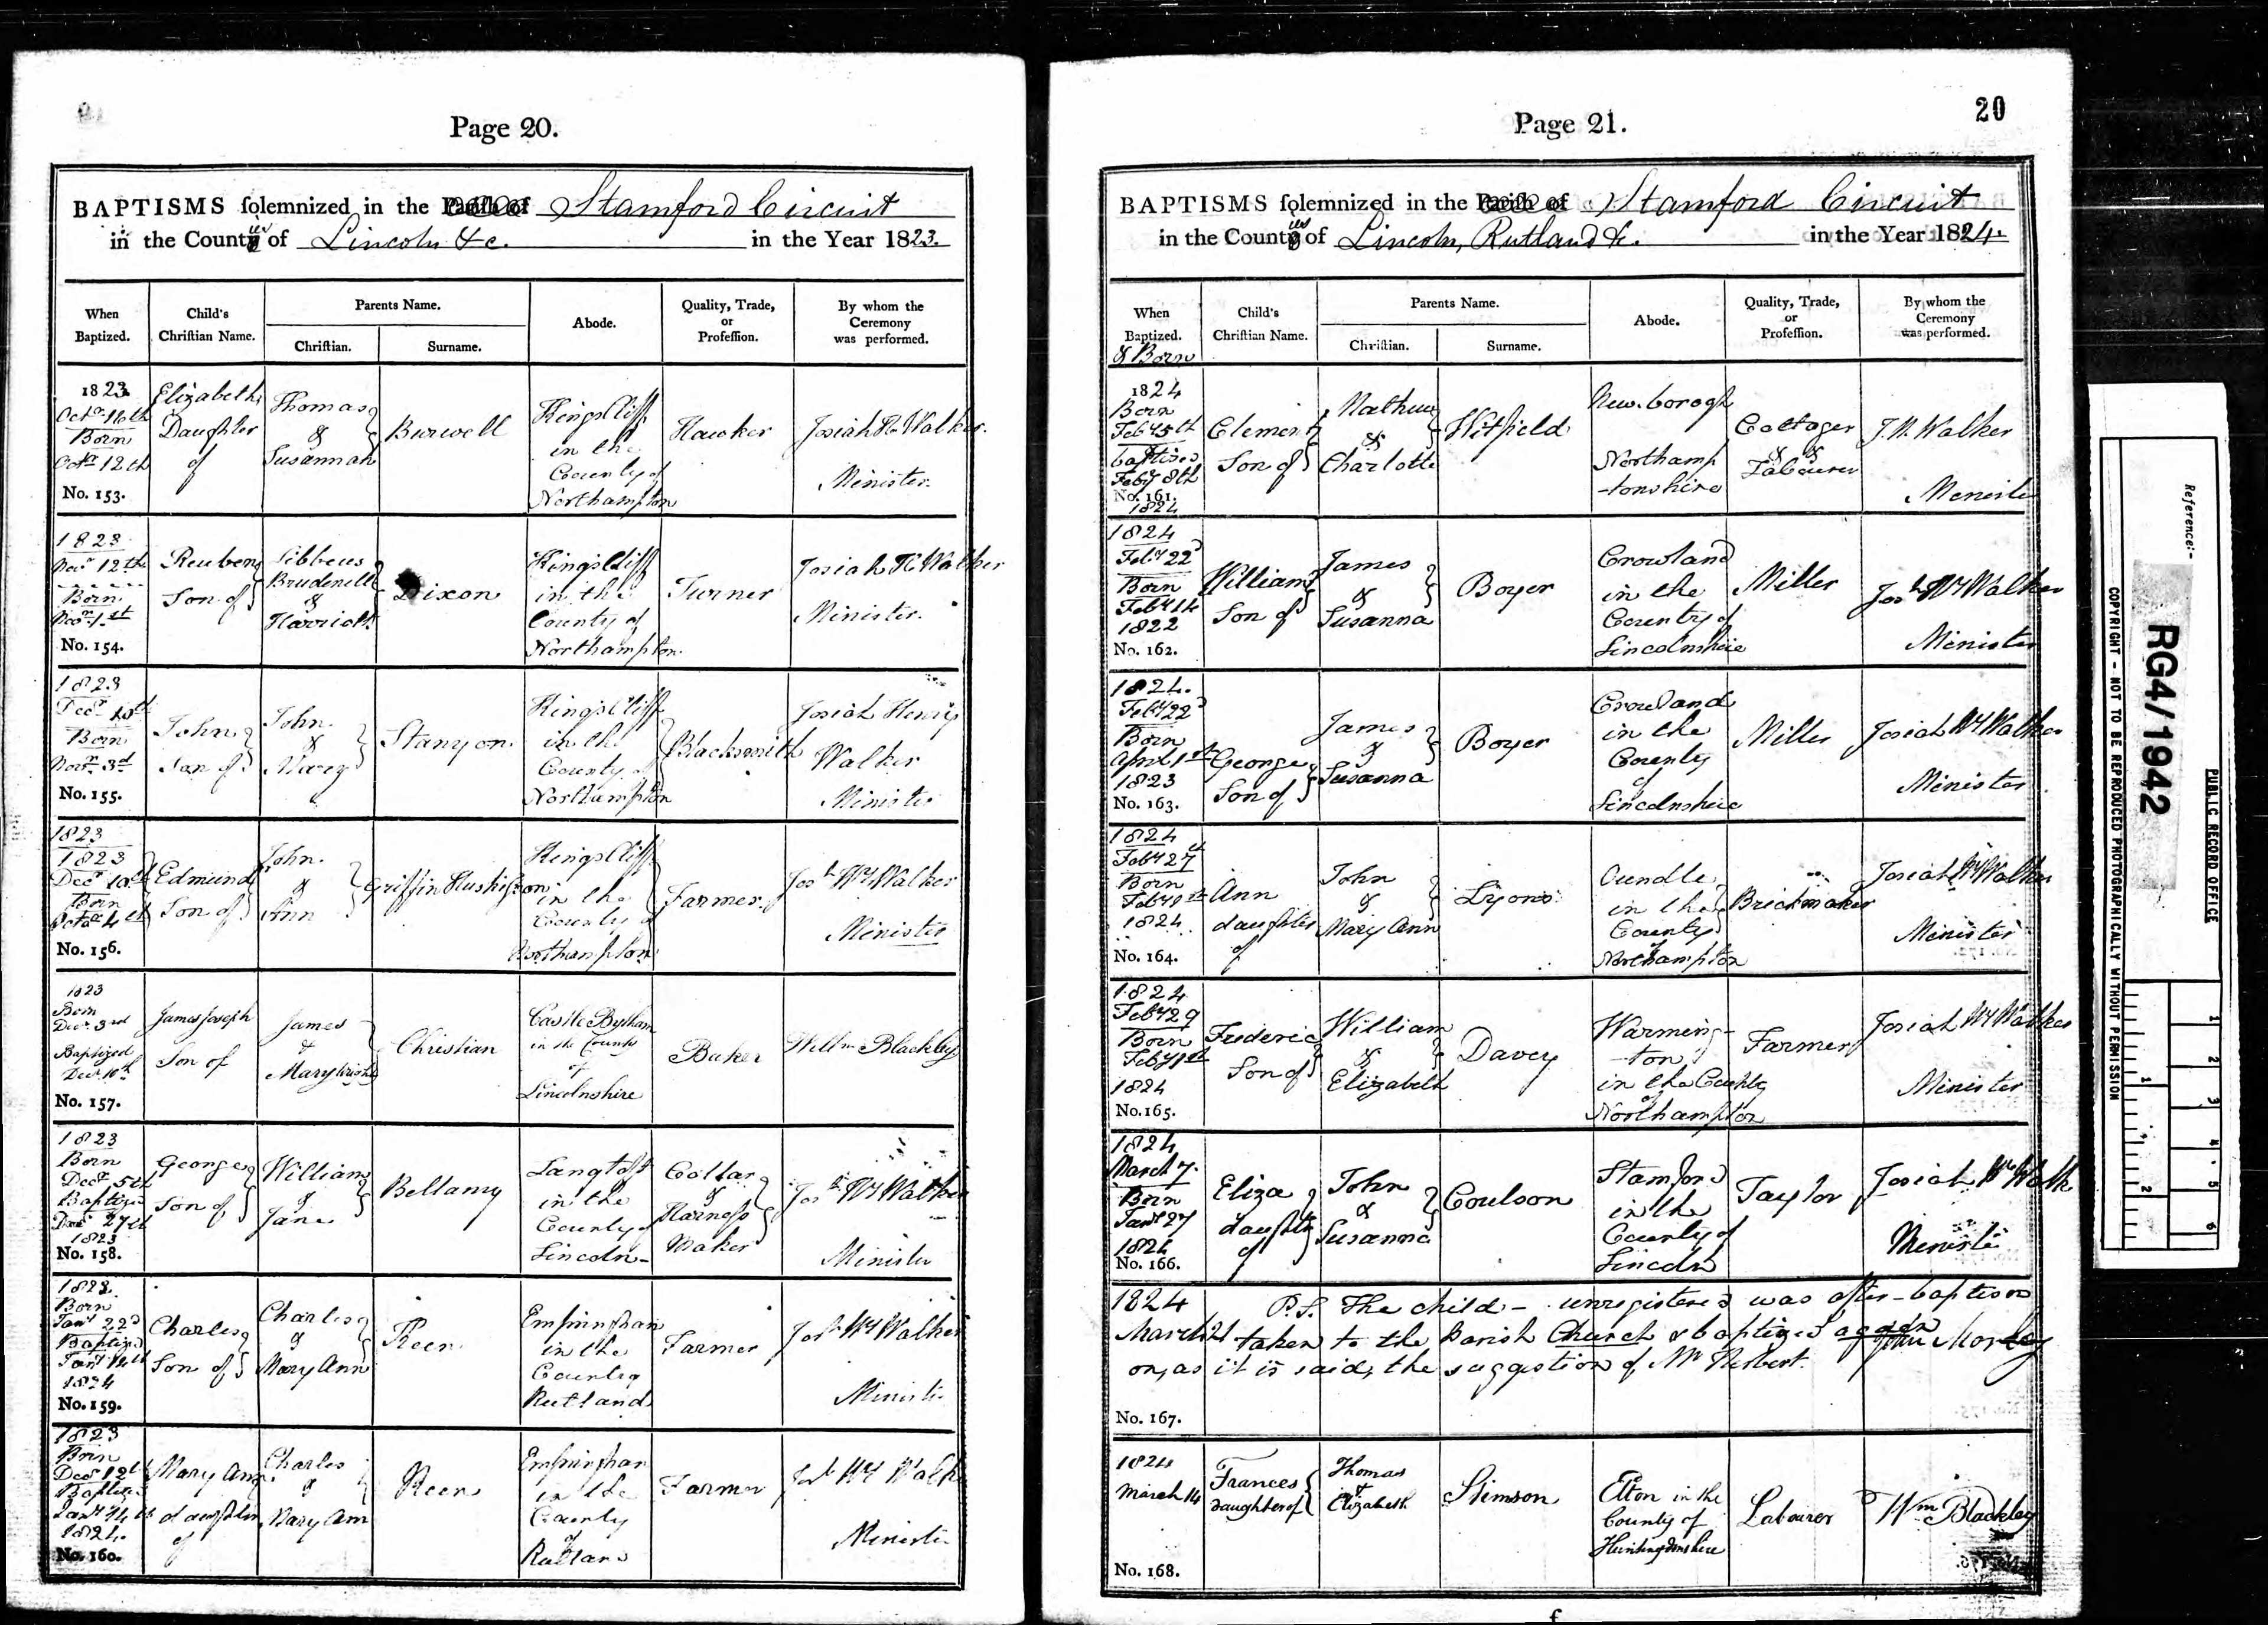 Page 20.
BAPTISMS ſolemnized in the Pariſh of Stamford Circuit
in the Counties of Lincoln &c. in the Year 1823.
When Baptized.
Child's Chriſtian Name.
Parents Name.
Chriſtian.
Surname.
Abode.
Quality, Trade, or Profeſſion.
By whom the Ceremony was performed.
1823
Octr 16th
Born
Octr 12th
No. 153.
Elizabeth
Daughter
of
Thomas
&
Susannah
Burwell
Kings Cliff
in the
County of
Northampton
Hawker
Josiah H. Walker.
Minister.
1823
Novr 12th
Born
Novr 1st
No. 154.
Reuben
Son of
Libbeus
Brudenell
&
Harriott
Dixon
Kings Cliff
in the
County of
Northampton.
Turner
Josiah H Walker
Minister.
1823
Decr 10th
Born
Novr 3rd
No. 155.
John
Son of
John
&
Mary
Stanyon
Kings Cliff
in the
County of
Northampton
Blacksmith
Josiah Henry
Walker
Minister
1823
1823
Decr 10th
Born
Octr 4th
No. 156.
Edmund
Son of
John
&
Ann
Griffin Huskisson
Kings Cliff
in the
County of
Northampton
Farmer
Josh Hy Walker
Minister
1823
Born
Decr 3rd
Baptized
Decr 10th
No. 157.
James Joseph
Son of
James
&
Mary
Christian
Castle Bytham
in the County
of
Lincolnshire
Baker
Willm Blackley
1823
Born
Decr 5th
Baptized
Decr 27th
1823
No. 158.
George
Son of
William
&
Jane
Bellamy
Langtoft
in the
County of
Lincoln
Collar
&
Harneſs
Maker
Josh Hy Walker
Minister
1822.
Born
Jany 22d
Baptized
Jany 14th
1824
No. 159.
Charles
Son of
Charles
&
Mary Ann
Reen
Empingham
in the
County
Rutland
Farmer
Josh Hy Walker
Minister
1823
Born
Decr 12th
Baptized
Jany 14th
1824.
No. 160.
Mary Ann
daughter
of
Charles
&
Mary Ann
Reen
Empingham
in the
County
of
Rutland
Farmer
Josh Hy Walker
Minister
20
Page 21.
BAPTISMS ſolemnized in the Pariſh of Stamford Circuit
in the Counties of Lincoln, Rutland &c. in the Year 1824.
When Baptized.
& Born
Child's Chriſtian Name.
Parents Name.
Chriſtian.
Surname.
Abode.
Quality, Trade, or Profeſſion.
By whom the Ceremony was performed.
1824
Born
Feby 5th
baptised
Feby 8th
No. 161.
1824
Clement
Son of
Mathew
&
Charlotte
Hitfield
Newborogh
Northamp
-tonshire
Cottager
&
Labourer
J. H. Walker
Minister
1824
Feby 22d
Born
Feby 14
1822
No. 162.
William
Son of
James
&
Susanna
Boyer
Crowland
in the
County of
Lincolnshire
Miller
Josh Hy Walker
Minister
1824.
Feby 22d
Born
April 1st
1823
No. 163.
George
Son of
James
&
Susanna
Boyer
Crowland
in the
County
of
Lincolnshire
Miller
Josiah Hy Walker
Minister
1824
Feby 27th
Born
Feby 1st
1824
No. 164.
Ann
daughter
of
John
&
Mary Ann
Lyons
Oundle
in the
County
of
Northampton
Brickmaker
Josiah Hy Walker
Minister
1824
Feby 29
Born
Feby 1st
1824
No. 165.
Frederic
Son of
William
&
Elizabeth
Davey
Warming-
ton
in the County
of
Northampton
Farmer
Josiah Hy Walker
Minister
1824
March 7.
Born
Jany 27
1824
No. 166.
Eliza
daughter
of
John
&
Susanna
Coulson
Stamford
in the
County of
Lincoln
Taylor
Josiah Hy Walk
Minister
1824 P.S. The child - unregistered was after - baptism
March 21 taken to the Parish Church & baptized again
on, as it is said, the suggestion of Mr Herbert. John Morley
No. 167.
1824
March 14
No. 168.
Frances
Daughter of
Thomas
&
Elizabeth
Stimson
Elton in the
County of
Huntingdonshire
Labourer
Wm Blackley
f
Reference:-
RG4/1942
PUBLIC RECORD OFFICE
COPYRIGHT - NOT TO BE REPRODUCED PHOTOGRAPHICALLY WITHOUT PERMISSION
1
2
1
2
3
4
5
6